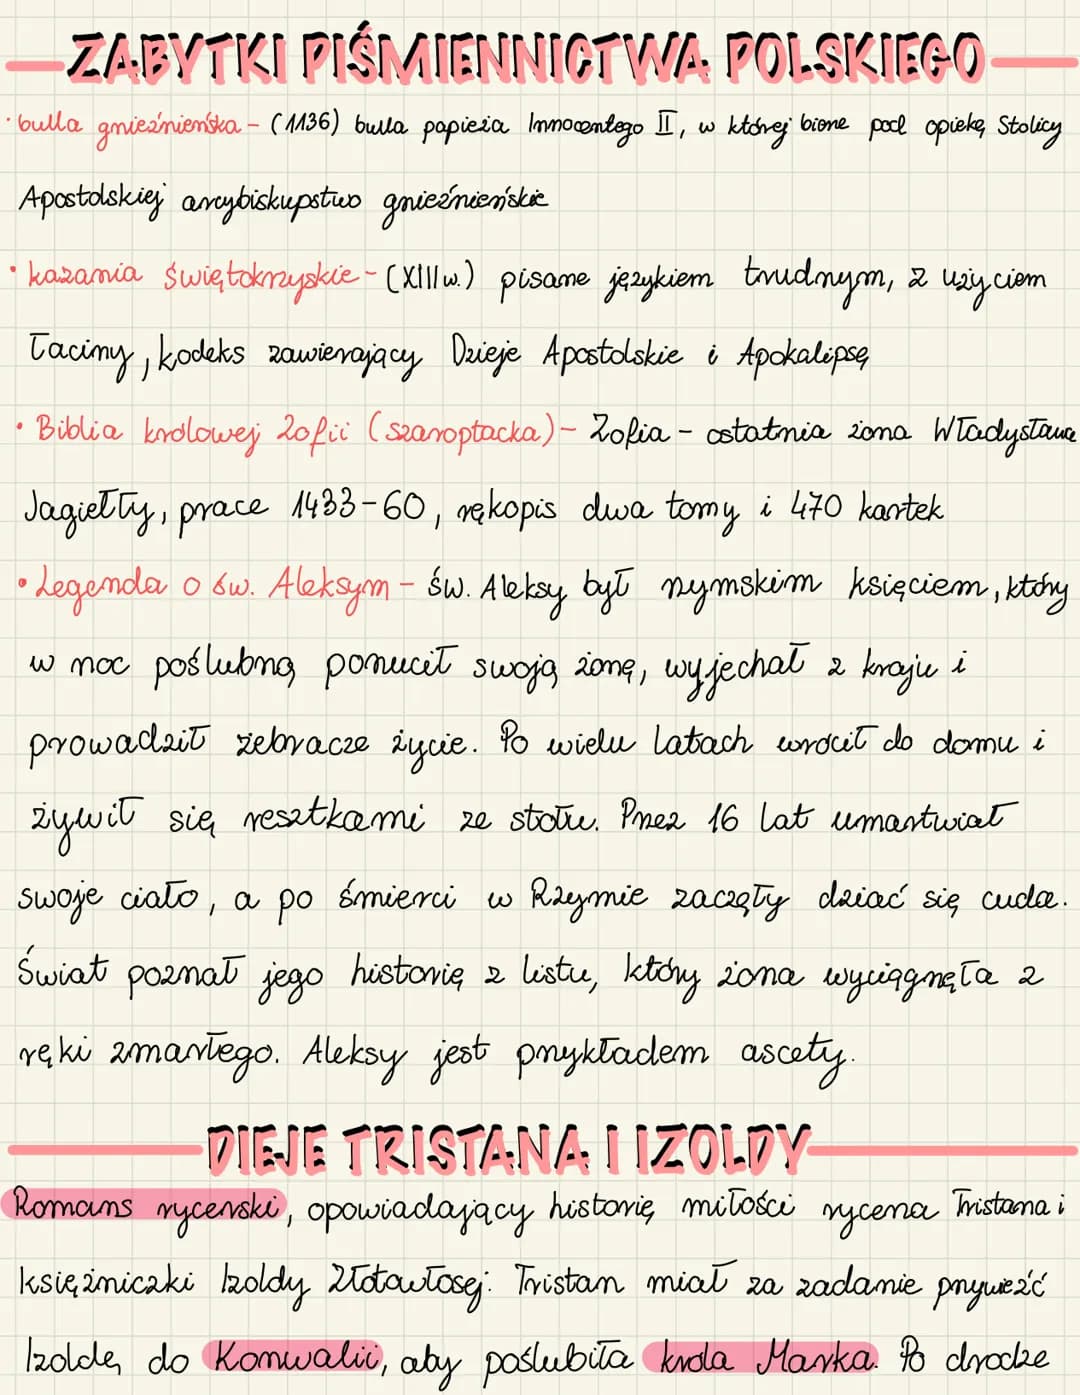 ZABYTKI PIŚMIENNICTWA POLSKIEGO
• bulla gnieźnieńska - (1136) bulla papieża Innocentego II, w której bione pod opiekę Stolicy
Apostolskiej arcybiskupstwo gnieźnieńskie
• kazania świętokrzyskie - (XIII w.) pisane językiem trudnym, z użyciem
łaciny, kodeks zawierający Dzieje Apostolskie i Apokalipsę
• Biblia królowej Zofii (szaroptacka) - Zofia - ostatnia żona Władysława
Jagiełły, prace 1433-60, rękopis dwa tomy i 470 kartek
• Legenda o św. Aleksym - św. Aleksy był rzymskim księciem, który
w noc poślubną porzucił swoją żonę, wyjechał z kraju i
prowadził żebracze życie. Po wielu latach wrócił do domu i
żywił się resztkami ze stołu. Przez 16 lat umartwiał
swoje ciało, a po śmierci w Rzymie zaczęły dziać się cuda.
Świat poznał jego historię z listu, który żona wyciągnęła z
ręki zmarłego. Aleksy jest przykładem ascety.
DIEJE TRISTANA I IZOLDY
Romans rycerski, opowiadający historię miłości rycerza Tristana i
księżniczki Izoldy Złotowłosej. Tristan miał za zadanie przywieźć
Izoldę do Kornwalii, aby poślubiła króla Marka. Po drodze